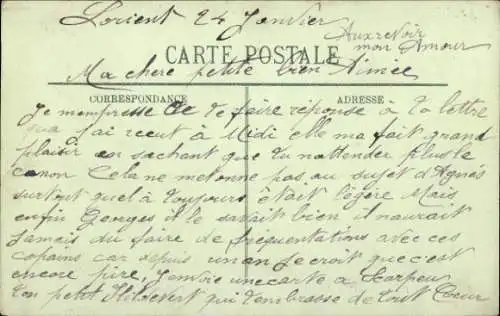 Lorient 24 Janvier
Aux revoir
mon Amour
CARTE POSTALE
Ma chere petite bien Aimée
CORRESPONDANCE
ADRESSE
Je mempresse de te faire réponse à ta lettre
que j'ai recut à Midi elle ma fait grand
plaisir en sachant que tu nattender plus le
canon Cela ne metonne pas au sujet d'Agnés
surtout quel à toujours était légère Mais
enfin Georges il le savait bien il naurait
jamais du faire de fréquentations avec ces
copains car depuis un an je croit que c'est
encore pire, Jenvoie une carte a
ton petit Hildevert qui t'embrasse de tout Coeur